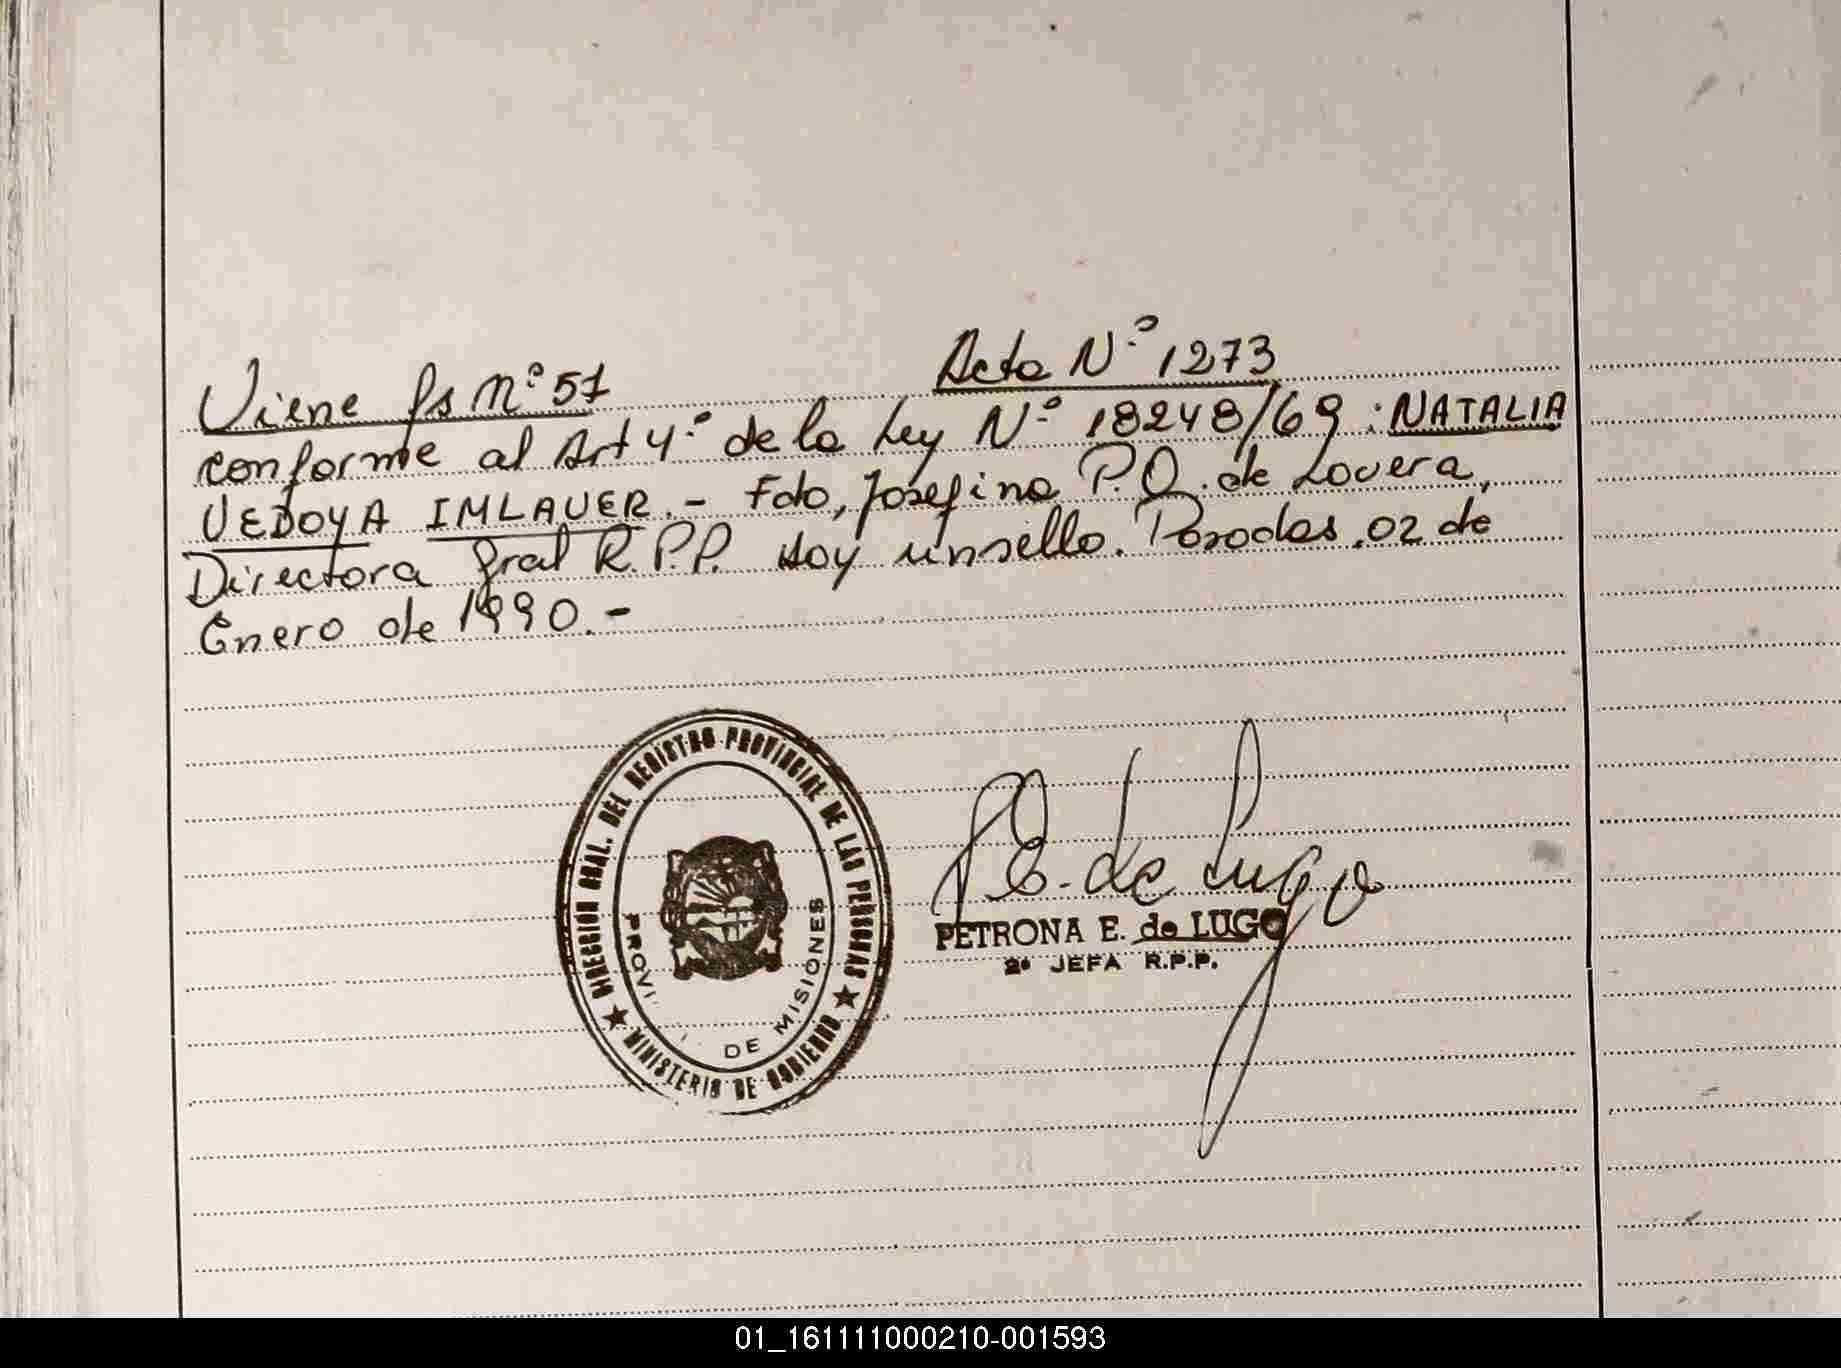 Viene fs nº 51 Acta Nº 1273
conforme al Art 4º de la Ley Nº 18248/69 : NATALIA
VEDOYA IMLAUER. - Fdo, Josefina P.O. de Lovera,
Directora Gral R.P.P. Hay un sello. Posadas, 02 de
Enero de 1990. -
DIRECCION GRAL. DEL REGISTRO PROVINCIAL DE LAS PERSONAS
PROVI DE MISIONES
MINISTERIO DE GOBIERNO
P.E. de Lugo
PETRONA E. de LUGO
2º JEFA R.P.P.
01_161111000210-001593